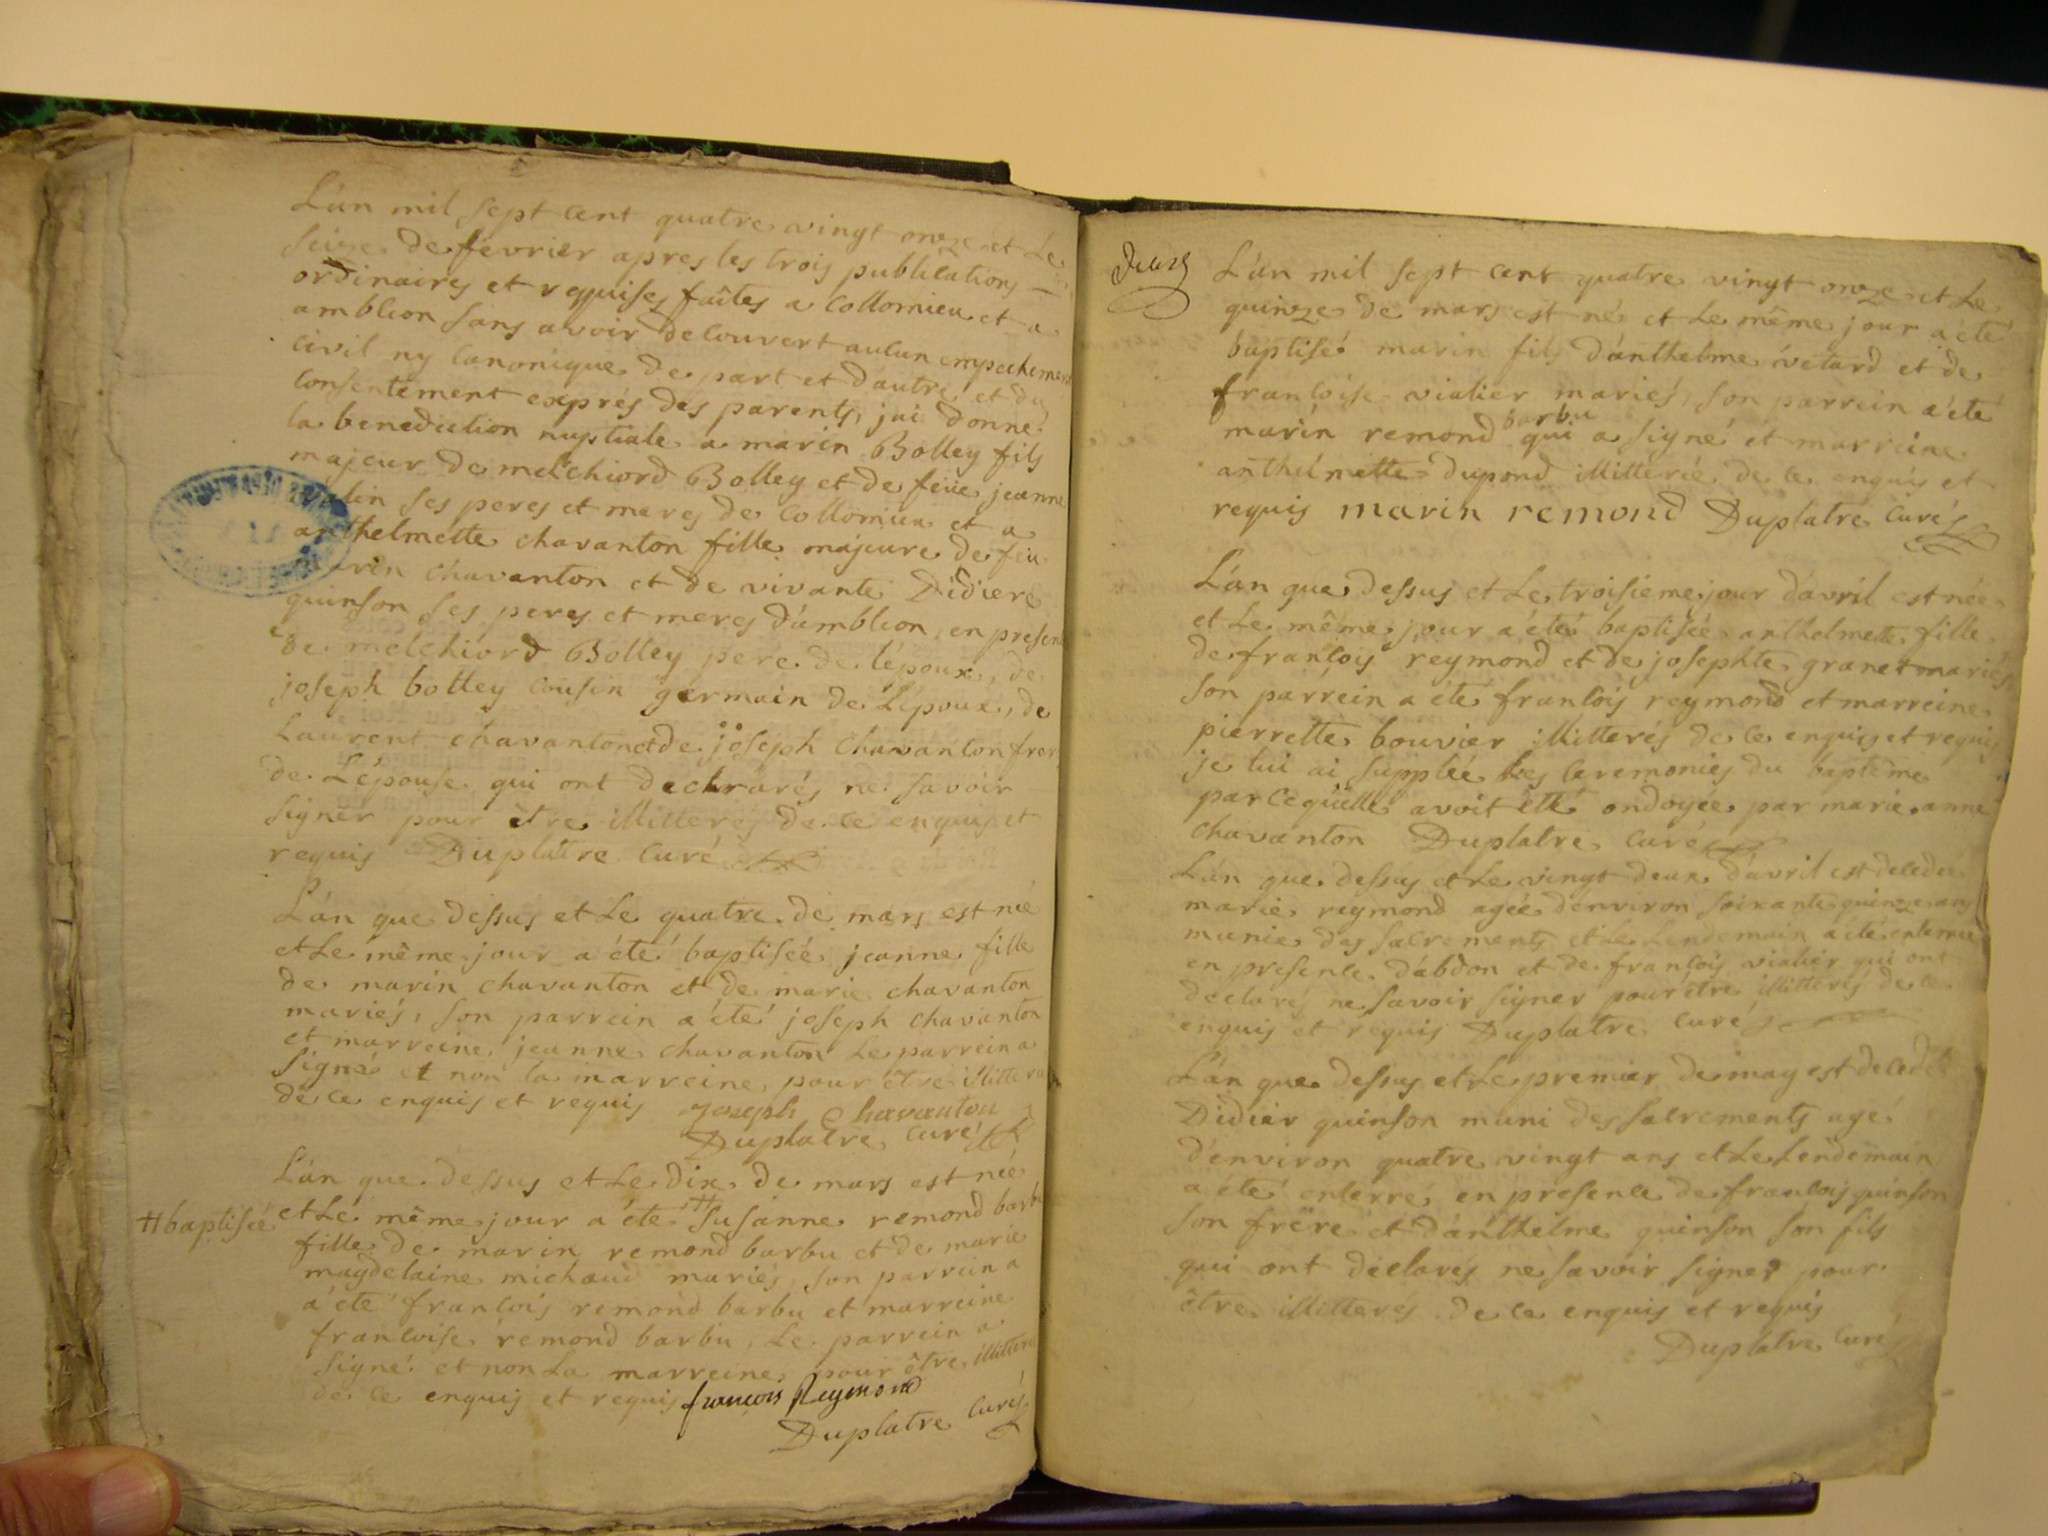 L'an mil sept cent quatre vingt onze et Le
seize de fevrier apres les trois publications
ordinaires et requises faîtes a Collomieu et a
amblion sans avoir decouvert aucun empechement
civil ny canonique de part et d'autre et du
consentement exprés des parents, jai donne
la benediction nuptiale a marin Bolley fils
majeur de melchiord Bolley et de feüe jeanne
ses peres et meres de Collomieu et a
anthelmette chavanton fille majeure de feu
marin chavanton et de vivante Didiere
quinson ses peres et meres d'amblion, en presen
ce de melchiord Bolley pere de l'époux, de
joseph bolley cousin germain de L'époux, de
Laurent chavanton et de joseph chavanton frer
de L'épouse qui ont declrarés ne savoir
signer pour être illitterés de ce enquis et
requis Duplatre Curé
L'an que dessus et Le quatre de mars est née
et Le même jour a été baptisée jeanne fille
de marin chavanton et de marie chavanton
mariés, son parrein a été joseph chavanton
et marreine jeanne chavanton Le parrein a
signé et non la marreine pour être illittere
de ce enquis et requis Joseph Chavanton
Duplatre Curé
L'an que dessus et Le dix de mars est née
# baptisée et Le même jour a été # susanne remond barbu
fille de marin remond barbu et de marie
magdelaine michaud mariés, son parrein a
a été françois remond barbu et marreine
francoise remond barbu, Le parrein a
signé et non La marreine pour être illittere
de ce enquis et requis françois Reymond
Duplatre Curé
L'an mil sept cent quatre vingt onze et Le
quinze de mars est né et Le même jour a été
baptisé marin fils d'anthelme vetard et de
francoise vialier mariés, son parrein a été
marin remond barbu qui a signé et marreine
anthelmette dupond illitterée de ce enquis et
requis marin remond Duplatre Curé
L'an que dessus et Le troisieme jour d'avril est née
et Le même jour a été baptisée anthelmette fille
de françois reymond et de josephte granet mariés
son parrein a été françois reymond et marreine
pierrette bouvier illitterés de ce enquis et requis
je lui ai supplée les ceremonies du baptême
parcequ'elle avoit été ondoyée par marie anne
chavanton Duplatre Curé
L'an que dessus et Le vingt deux d'avril est decedée
marie reymond agée d'environ soixante quinze ans
munie des sacrements et Le Lendemain a été enterrée
en presence d'abdon et de françois vialier qui ont
déclarés ne savoir signer pour être illitterés de ce
enquis et requis Duplatre Curé
L'an que dessus et Le premier de may est decedé
Didier quinson muni des sacrements agé
d'environ quatre vingt ans et Le Lendemain
a été enterré en presence de françois quinson
son frére et d'anthelme quinson son fils
qui ont déclarés ne savoir signer pour
être illitterés de ce enquis et requis
Duplatre Curé